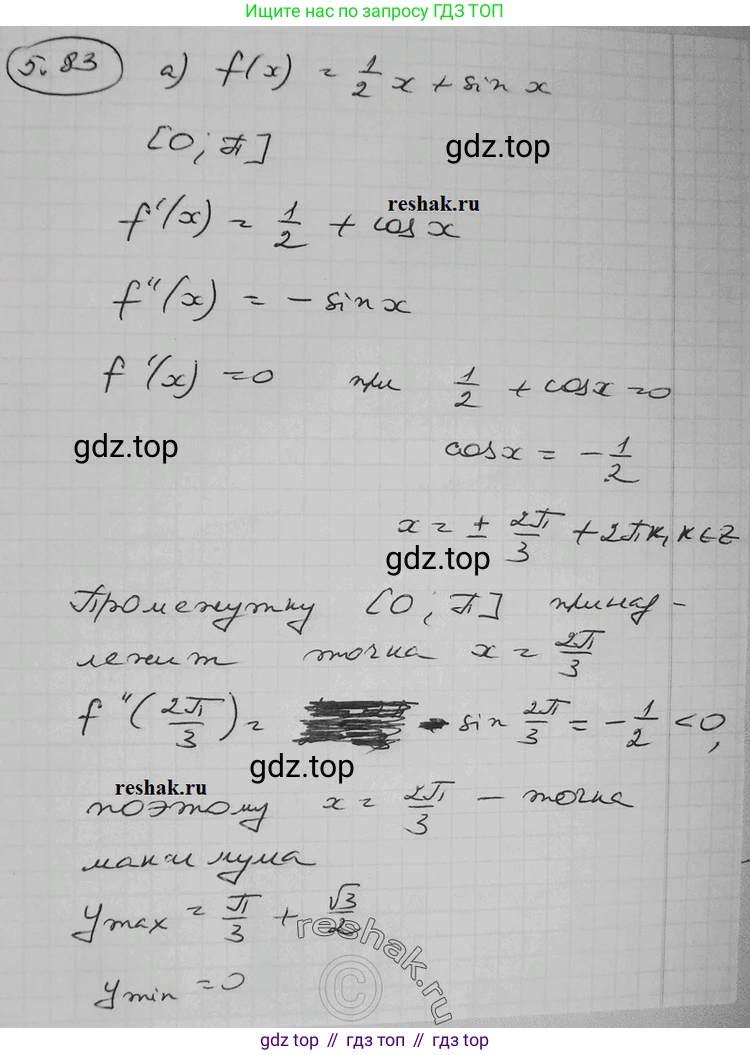 Ищите нас по запросу ГДЗ ТОП
5.83 а) f(x) = 1/2 x + sin x
[0; π]
gdz.top
reshak.ru
f'(x) = 1/2 + cos x
f''(x) = - sin x
f'(x) = 0 при 1/2 + cos x = 0
gdz.top
cos x = - 1/2
x = ± 2π/3 + 2πk, k ∈ Z
gdz.top
Промежутку [0; π] принад-
лежит точка x = 2π/3
f''(2π/3) = - sin 2π/3 = - 1/2 < 0,
gdz.top
reshak.ru
поэтому x = 2π/3 - точка
максимума
y max = π/3 + √3/2
reshak.ru
©
y min = 0
gdz.top // гдз топ // gdz.top